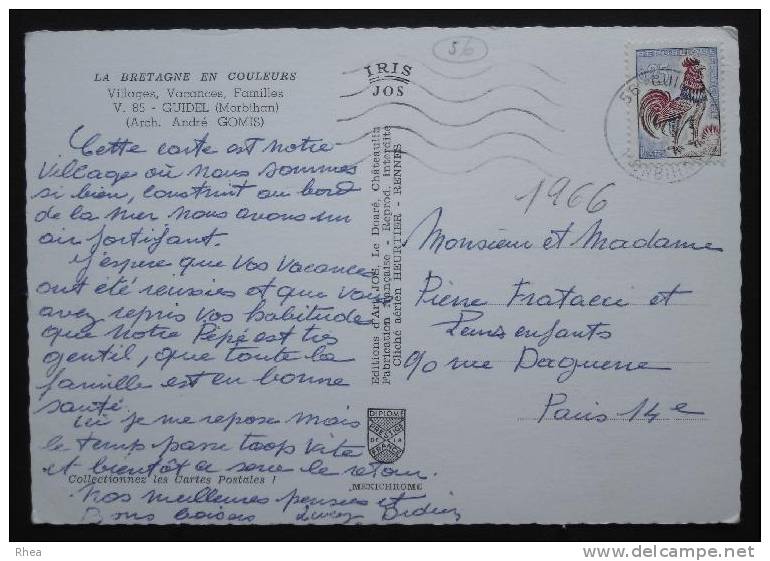 56
LA BRETAGNE EN COULEURS
Villages, Vacances, Familles
V. 85 - GUIDEL (Morbihan)
(Arch. André GOMIS)
IRIS
JOS
Cette carte est notre
village où nous sommes
si bien, construit au bord
de la mer nous avons un
air fortifiant.
J'espère que vos vacances
ont été réussies et que vous
avez repris vos habitudes
que notre Pépé est très
gentil, que toute la
famille est en bonne
santé
Ici je me repose mais
le temps passe troop vite
et bientôt ce sera le retour.
Collectionnez les Cartes Postales !
Nos meilleures pensées et
Bons baisers
Editions d'Art JOS Le Doaré, Châteaulin
Fabrication française - Reprod. interdite
Cliché aérien HEURTIER - RENNES
DIPLOME
PRESTIGE
DE LA
FRANCE
MEXICHROME
56
MORBIHAN
1966
Monsieur et Madame
Pierre Fratacci et
Leurs enfants
90 rue Daguerre
Paris 14e
Rhea
http://www.delcampe.net